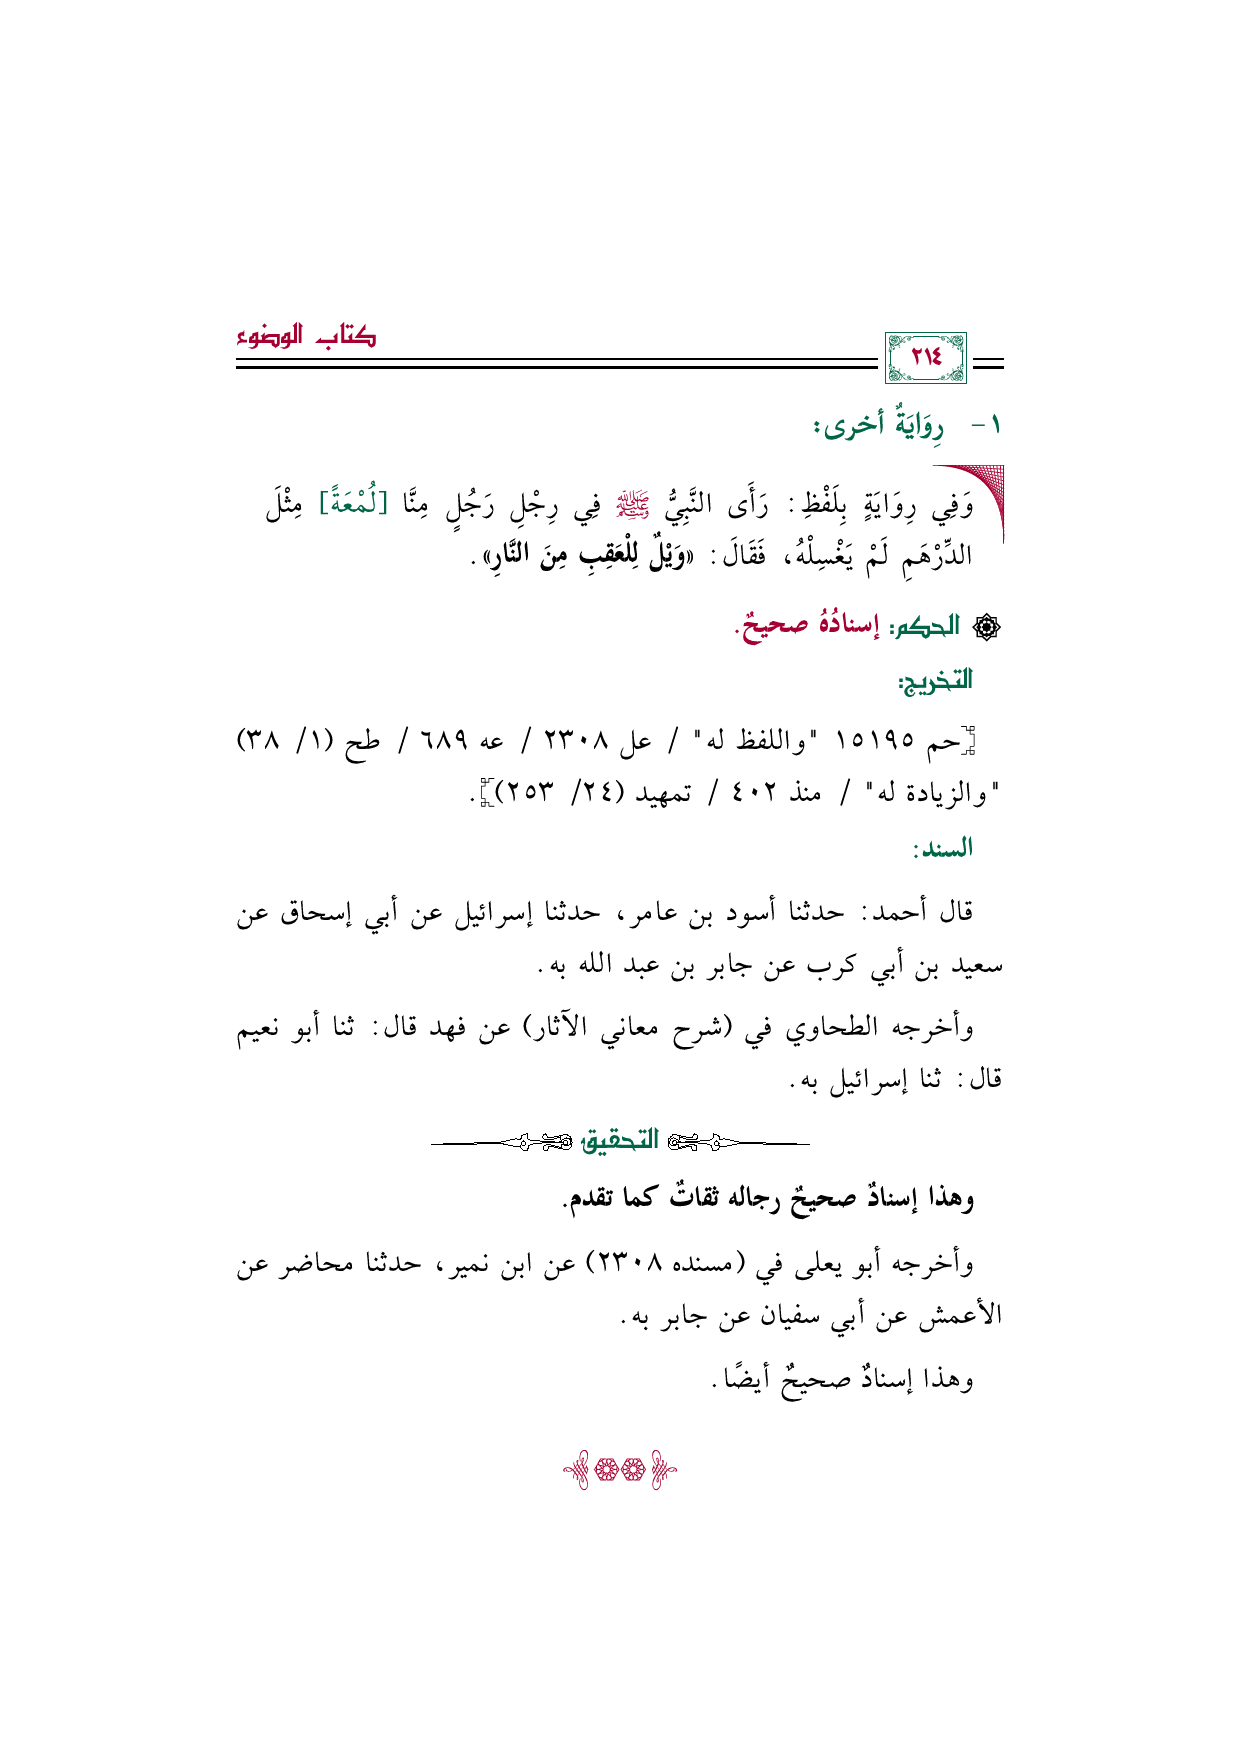 كتاب الوضوء
٢١٤
١- رِوَايَةٌ أخرى:
وَفِي رِوَايَةٍ بِلَفْظِ: رَأَى النَّبِيُّ ﷺ فِي رِجْلِ رَجُلٍ مِنَّا [لُمْعَةً] مِثْلَ
الدِّرْهَمِ لَمْ يَغْسِلْهُ، فَقَالَ: «وَيْلٌ لِلْعَقِبِ مِنَ النَّارِ».
الحكم: إسنادُهُ صحيحٌ.
التخريج:
[حم ١٥١٩٥ "واللفظ له" / عل ٢٣٠٨ / عه ٦٨٩ / طح (١/ ٣٨)
"والزيادة له" / منذ ٤٠٢ / تمهيد (٢٤/ ٢٥٣)].
السند:
قال أحمد: حدثنا أسود بن عامر، حدثنا إسرائيل عن أبي إسحاق عن
سعيد بن أبي كرب عن جابر بن عبد الله به.
وأخرجه الطحاوي في (شرح معاني الآثار) عن فهد قال: ثنا أبو نعيم
قال: ثنا إسرائيل به.
التحقيق
وهذا إسنادٌ صحيحٌ رجاله ثقاتٌ كما تقدم.
وأخرجه أبو يعلى في (مسنده ٢٣٠٨) عن ابن نمير، حدثنا محاضر عن
الأعمش عن أبي سفيان عن جابر به.
وهذا إسنادٌ صحيحٌ أيضًا.